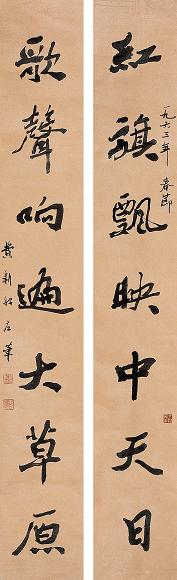 紅旗飄映中天日
一九六三年 春節
歌聲响遍大草原
費新我左筆